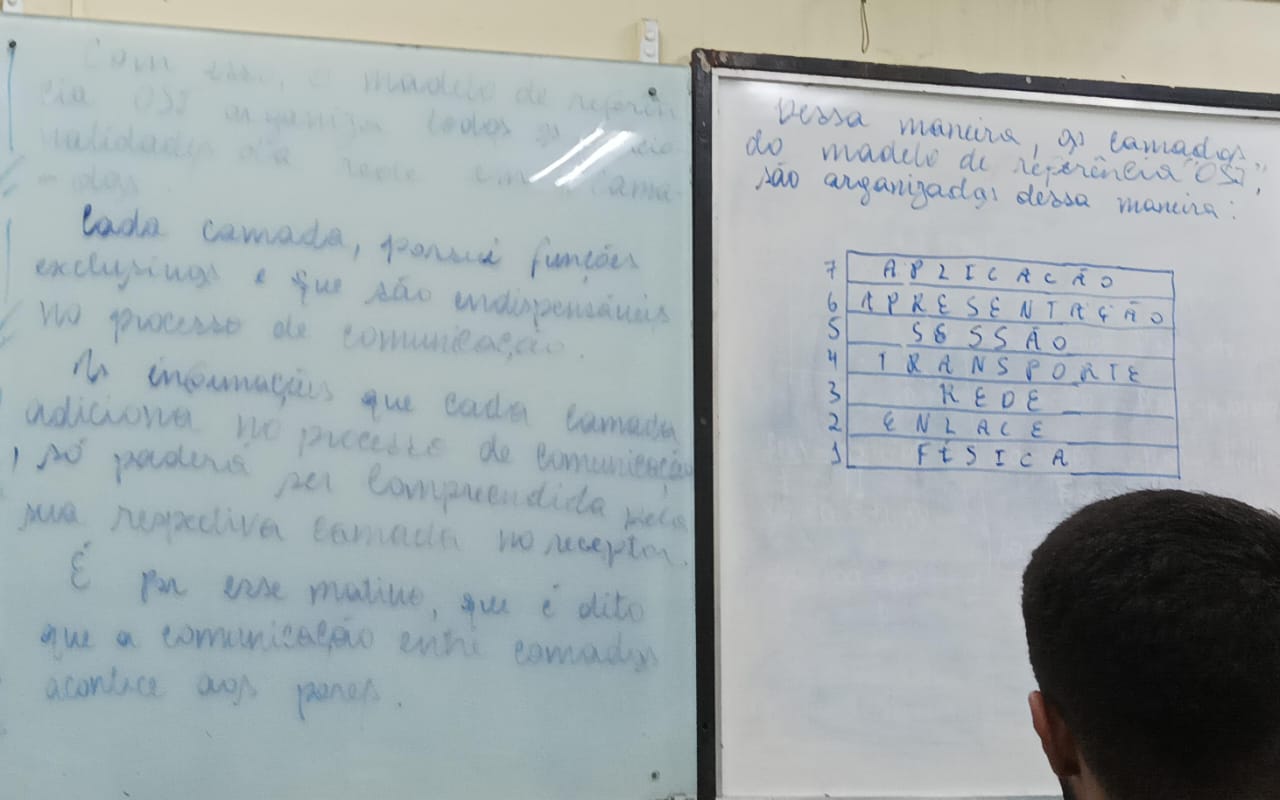 Com esse, o modelo de referên
cia OSI organiza todas as funcio
nalidades da rede em cama-
-das.
Cada camada, possui funções
exclusivas e que são indispensáveis
no processo de comunicação.
As informações que cada camada
adiciona no processo de comunicação
, só poderá ser compreendida pela
sua respectiva camada no receptor.
É por esse motivo, que é dito
que a comunicação entre camadas
acontece aos pares.
Dessa maneira, as camadas
do modelo de referência "OSI",
são organizadas dessa maneira:
7 APLICACÃO
6 APRESENTAÇÃO
5 SESSÃO
4 TRANSPORTE
3 REDE
2 ENLACE
1 FÍSICA